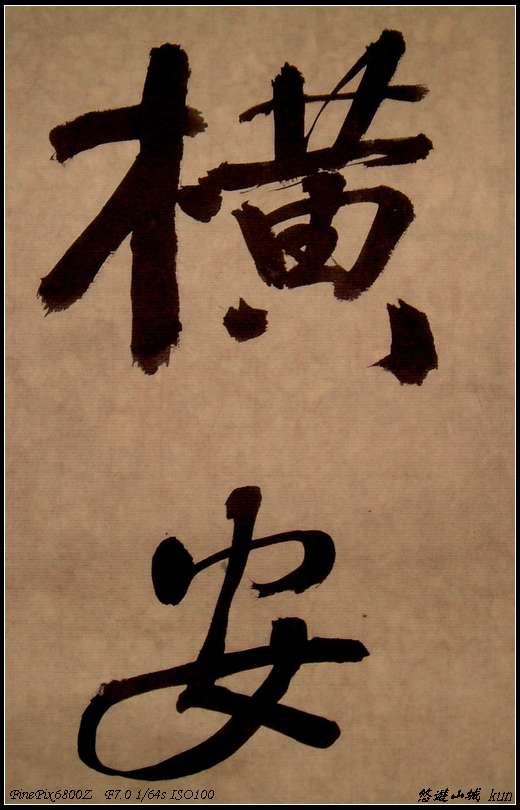 橫
安
FinePix6800Z F7.0 1/64s ISO100
悠遊山城 kun